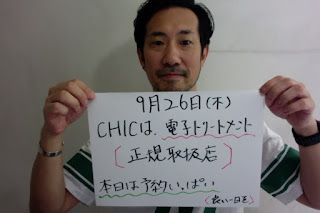 9月26日(木)
CHICは、電子トリートメント
[正規取扱店]
本日は予約いっぱい
(良い一日を)